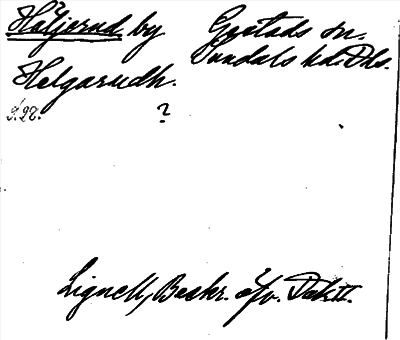 Håljerud by
Gestads sn.
Sundals hd. Dls.
Helgarudh.
?
Lignell, Beskr. ö/v. Dal II.